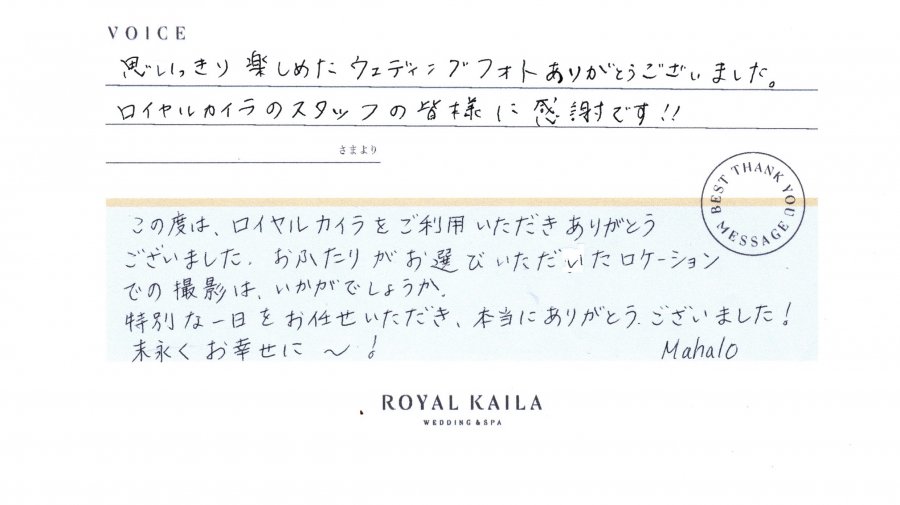 VOICE
思いっきり楽しめたウェディングフォトありがとうございました。
ロイヤルカイラのスタッフの皆様に感謝です!!
さまより
BEST THANK YOU MESSAGE
この度は、ロイヤルカイラをご利用いただきありがとう
ございました. おふたりがお選びいただいたロケーション
での撮影は、いかがでしょうか.
特別な一日をお任せいただき、本当にありがとうございました!
末永くお幸せに〜!
Mahalo
ROYAL KAILA
WEDDING & SPA